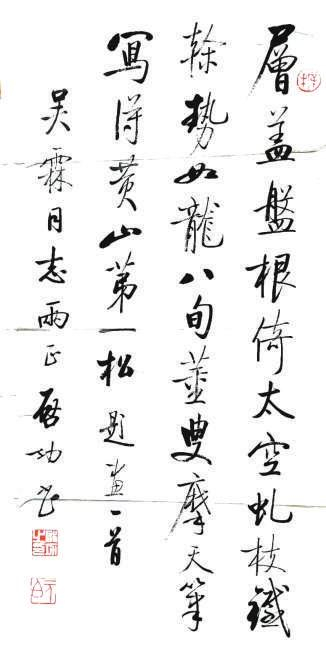 層蓋盤根倚太空虬枝鐵
榦勢如龍八旬董叟摩天筆
寫得黃山第一松 題畫一首
吴霖同志兩正 啓功書